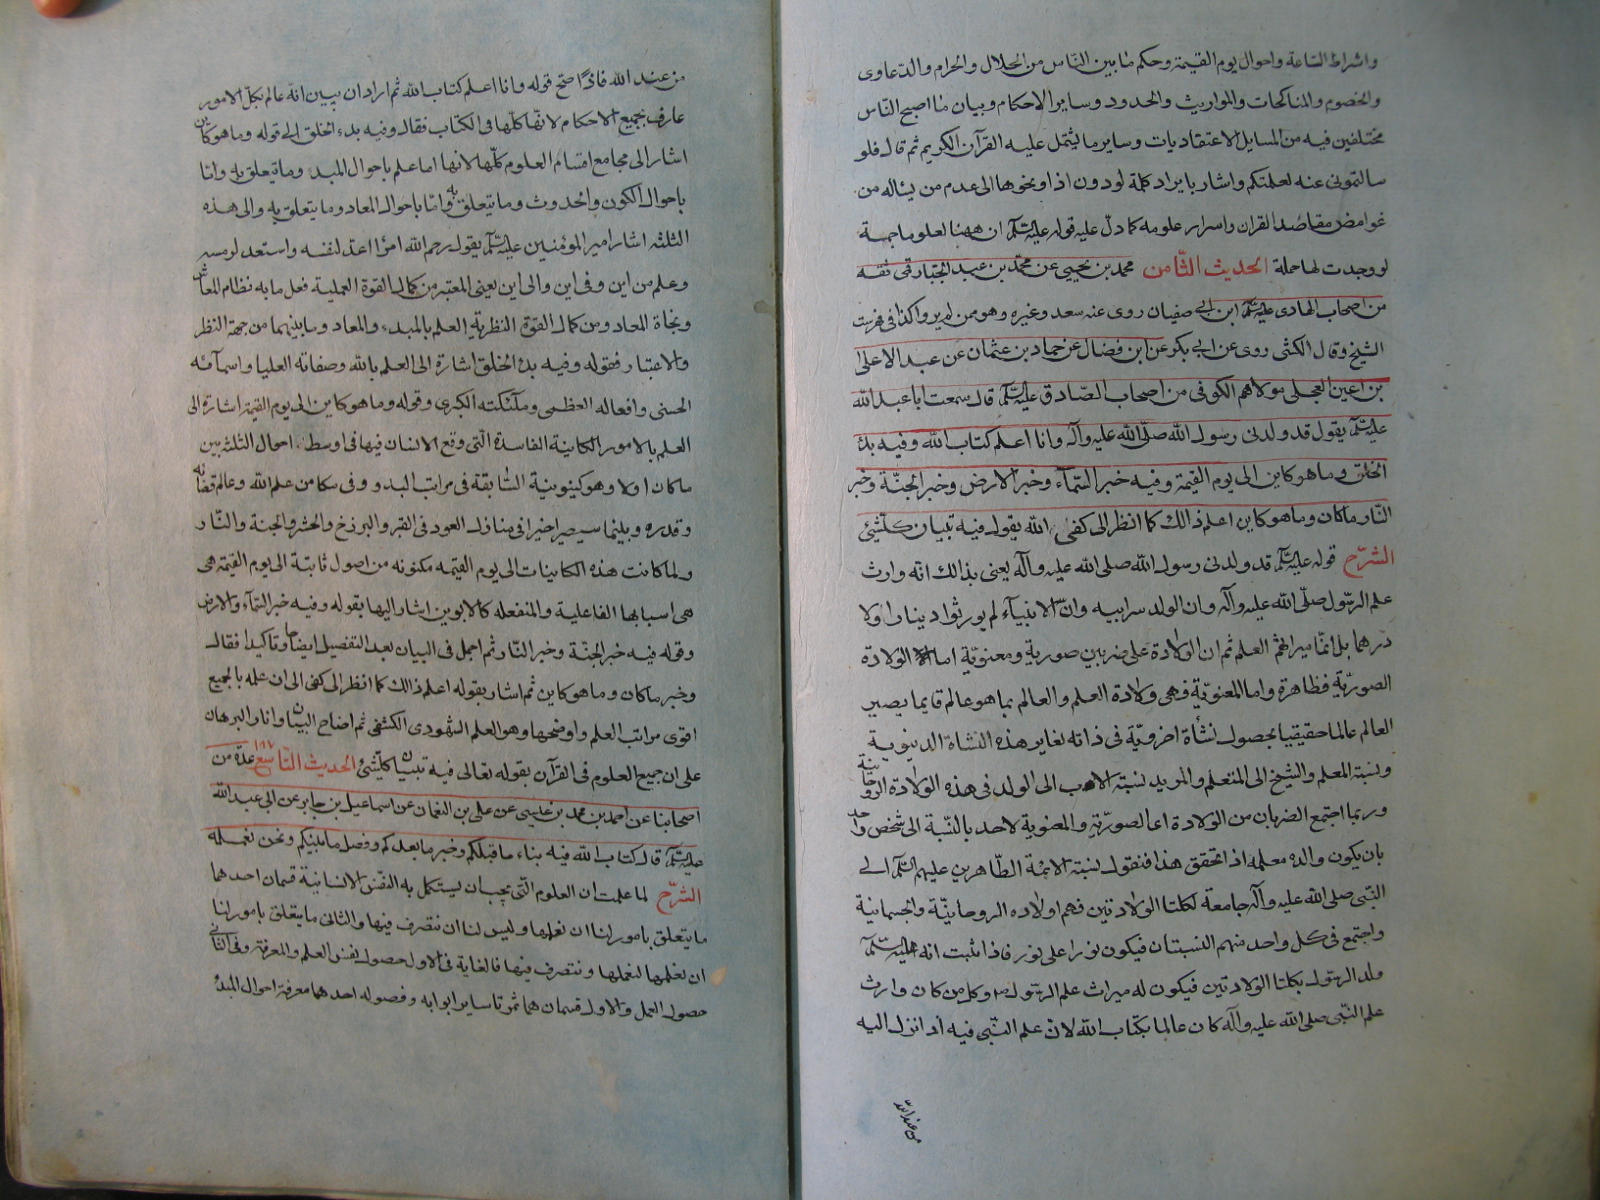 واشراط الساعة واحوال يوم القيمة وحكم ما بين الناس من الحلال والحرام والدعاوى
والخصوم والمناكحات والمواريث والحدود وساير الاحكام وبيان ما اصبح الناس
مختلفين فيه من المسايل الاعتقاديات وساير ما يشتمل عليه القرآن الكريم ثم قال فلو
سالتمونى عنه لعلمتكم واشار بايراد كلمة لو دون اذا ونحوها الى عدم من يساله من
غوامض مقاصد القران واسرار علومه كما دل عليه قوله عليه السلم ان ههنا لعلوما جمة
لو وجدت لها حملة الحديث الثامن محمد بن يحيى عن محمد بن عبد الجبار قمى ثقه
من اصحاب الهادى عليه السلم ابن ابى صفيان روى عنه سعد وغيره وهو ممن لم يرو كذا فى فهرست
الشيخ وقال الكشى روى عن ابى بكر عن ابن فضال عن حماد بن عثمان عن عبد الاعلى
بن اعين العجلى مولاهم الكوفى من اصحاب الصادق عليه السلم قال سمعت ابا عبد الله
عليه السلم يقول قد ولدنى رسول الله صلى الله عليه وآله وانا اعلم كتاب الله وفيه بدء
الخلق وما هو كاين الى يوم القيمة وفيه خبر السماء وخبر الارض وخبر الجنة وخبر
النار ما كان وما هو كاين اعلم ذالك كما انظر الى كفى الله يقول فيه تبيان كلشئ
الشرح قوله عليه السلم قد ولدنى رسول الله صلى الله عليه وآله يعنى بذالك انه وارث
علم الرسول صلى الله عليه وآله وان الولد سر ابيه وان الانبياء لم يورثوا دينارا ولا
درهما بل انما ميراثهم العلم ثم ان الولادة على ضربين صورية ومعنوية اما الولادة
الصورية فظاهرة واما المعنوية فهى ولادة العلم والعالم بما هو عالم فانما يصير
العالم عالما حقيقيا بحصول نشأة اخروية فى ذاته تغاير هذه النشاة الدينوية
ونسبة المعلم والشيخ الى المتعلم والمريد نسبة الاب الى الولد فى هذه الولادة الروحانية
وربما اجتمع الضربان من الولادة اعنى الصورية والمعنوية لاحد بالنسبة الى شخص واحد
بان يكون والده معلمه اذا تحقق هذا فنقول نسبة الائمة الطاهرين عليهم السلم الى
النبى صلى الله عليه وآله جامعة لكلتا الولادتين فهم اولاده الروحانية والجسمانية
واجتمع فى كل واحد منهم النسبتان فيكون نورا على نور فاذا ثبت انه عليه السلم
ولد الرسول بكلتا الولادتين فيكون له ميراث علم الرسول ص وكل من كان وارث
علم النبى صلى الله عليه وآله كان عالما بكتاب الله لان علم النبى فيه اذ انزل اليه
من عند الله
من عند الله فاذا صح قوله وانا اعلم كتاب الله ثم اراد ان يبين انه عالم بكل الامور
عارف بجميع الاحكام لانها كلها فى الكتاب فقال وفيه بدء الخلق الى قوله وما هو كاين
اشار الى مجامع اقسام العلوم كلها لانها اما علم باحوال المبدء وما يتعلق به واما
باحوال الكون والحدوث وما يتعلق به واما باحوال المعاد وما يتعلق به والى هذه
الثلثه اشار امير المؤمنين عليه السلم بقوله رحم الله امرأ اعد لنفسه واستعد لرمسه
وعلم من اين وفى اين والى اين يعنى المعتبر من كمال القوة العملية فعل ما به نظام المعاش
ونجاة المعاد ومن كمال القوة النظرية العلم بالمبدء والمعاد وما بينهما من جهة النظر
والاعتبار فقوله وفيه بدء الخلق اشارة الى العلم بالله وصفاته العليا واسمائه
الحسنى وافعاله العظمى وملئكته الكبرى وقوله وما هو كاين الى يوم القيمة اشارة الى
العلم بالامور الكاينة الفاسدة التى وقع الانسان فيها فى اوسط احوال الثلث بين
ما كان اولا وهو كينونية السابقة فى مراتب البدو وفى سكا من علم الله وعالم قضائه
وقدره وبينما سيصير اخيرا فى منازل العود فى القبر والبرزخ والحشر والجنة والنار
ولما كانت هذه الكاينات الى يوم القيمه مكنونه من اصول ثابتة الى يوم القيمة هى
هى اسبابها الفاعلية والمنفعله كالابوين اشار اليها بقوله وفيه خبر السماء والارض
وقوله فيه خبر الجنة وخبر النار ثم اجمل فى البيان بعد التفصيل ايضاحا وتاكيدا فقال
وخبر ما كان وما هو كاين ثم اشار بقوله اعلم ذالك كما انظر الى كفى الى ان علمه بالجميع
اقوى مراتب العلم واوضحها وهو العلم الشهودى الكشفى ثم اضاح البيان وانار البرهان
على ان جميع العلوم فى القرآن بقوله تعالى فيه تبيان كلشئ الحديث التاسع ١٨٧ عدة من
اصحابنا عن احمد بن محمد بن عيسى عن على بن النعمان عن اسماعيل بن جابر عن ابى عبد الله
عليه السلم قال كتاب الله فيه نباء ما قبلكم وخبر ما بعدكم وفصل ما بينكم ونحن نعمله
الشرح لما علمت ان العلوم التى يجب ان يستكمل به النفس الانسانية قسمان احدهما
ما يتعلق بامور لنا ان نعلمها وليس لنا ان نتصرف فيها والثانى ما يتعلق بامور لنا
ان نعلمها لنعملها ونتصرف فيها فالغاية فى الاول حصول نفس العلم والمعرفة وفى الثانى
حصول العمل والاول قسمان هما ثمرتا ساير ابوابه وفصوله احدهما معرفة احوال المبدء